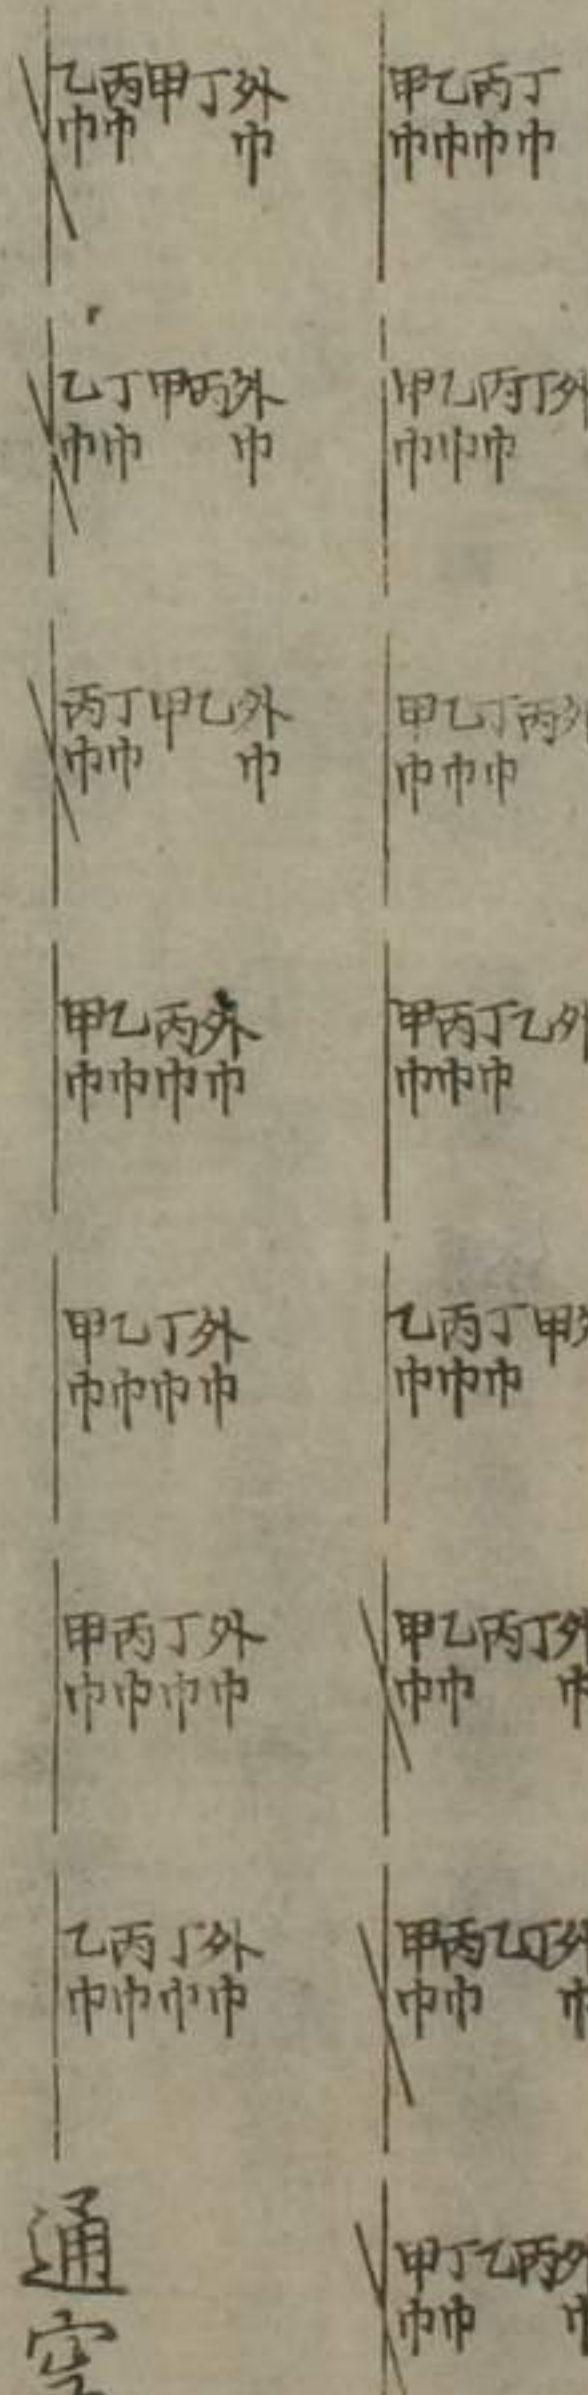 甲乙丙丁
巾巾巾巾
甲乙丙丁外
巾巾巾
甲乙丁丙外
巾巾巾
甲丙丁乙外
巾巾巾
乙丙丁甲
巾巾巾
甲乙丙丁外
巾巾 巾
甲丙乙丁外
巾巾 巾
甲丁乙丙外
巾巾 巾
乙丙甲丁外
巾巾 巾
乙丁甲丙外
巾巾 巾
丙丁甲乙外
巾巾 巾
甲乙丙外
巾巾巾巾
甲乙丁外
巾巾巾巾
甲丙丁外
巾巾巾巾
乙丙丁外
巾巾巾巾
通